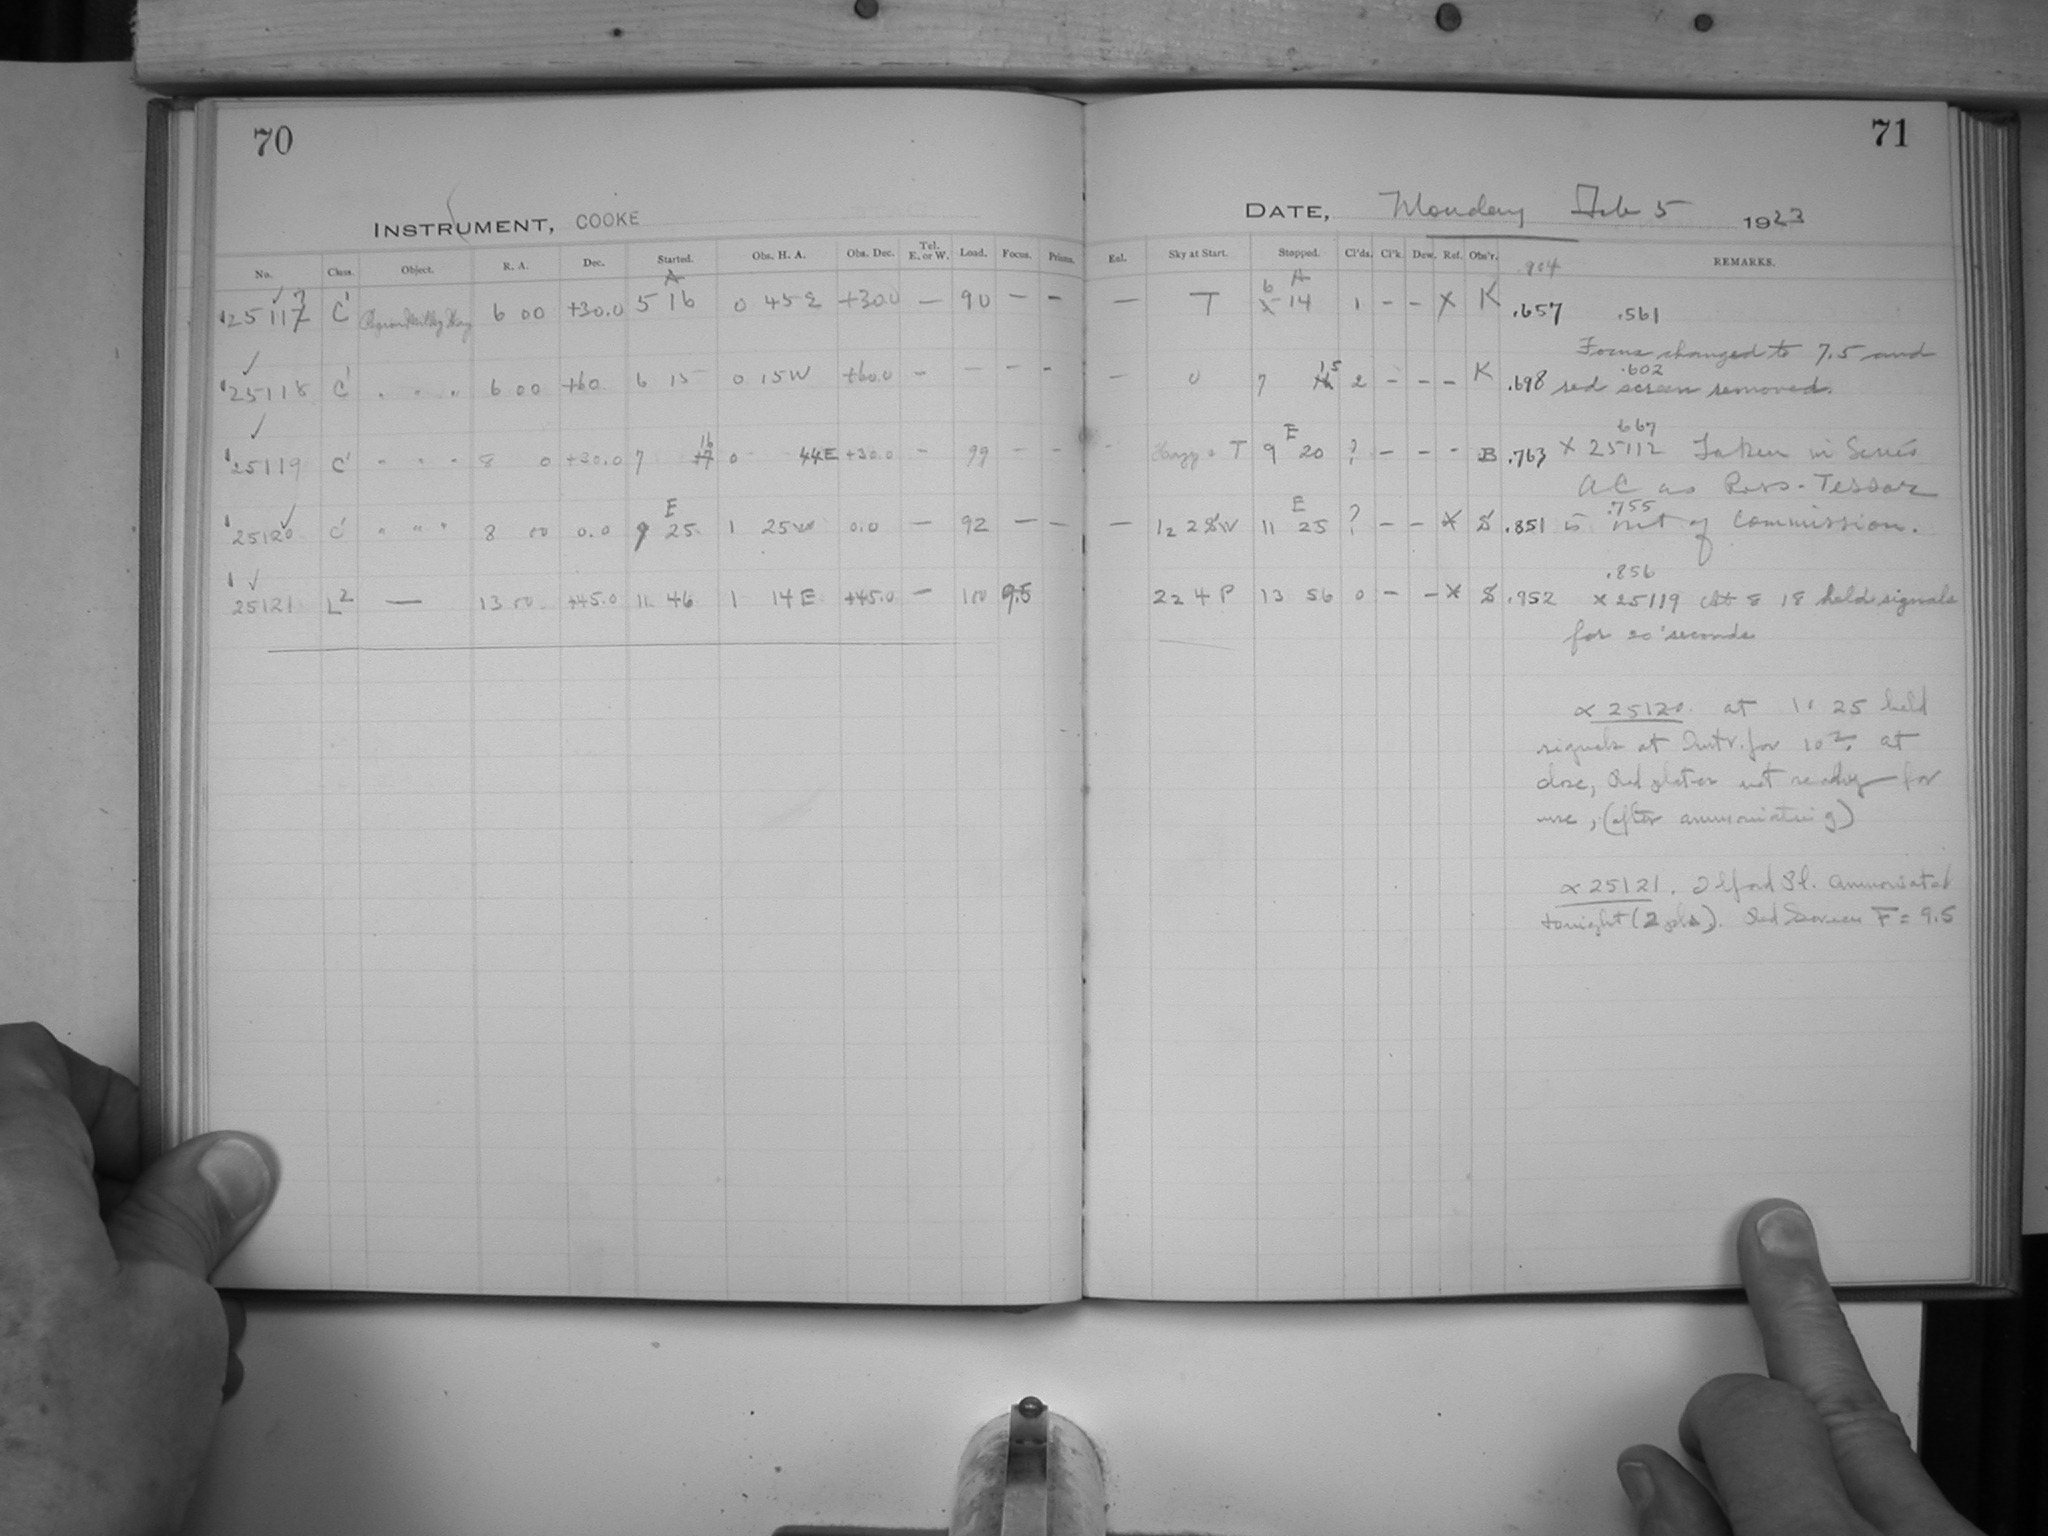 70
INSTRUMENT, COOKE
No. Class. Object. R. A. Dec. Started. Obs. H. A. Obs. Dec. Tel. E. or W. Load. Focus. Prisms.
A
25117 C' Region Milky Way 6 00 +30.0 5 16 0 45 E +30.0 — 90 — —
25118 C' " " " 6 00 +60. 6 15 0 15 W +60.0 — — — —
25119 C' " " " 8 0 +30.0 7 16 0 44 E +30.0 — 99 — —
E
25120 C' " " " 8 00 0.0 9 25 1 25 W 0.0 — 92 — —
25121 L2 — 13 00 +45.0 11 46 1 14 E +45.0 — 100 9.5
71
DATE, Monday Feb 5 1923
Enl. Sky at Start. Stopped. Cl'ds. Cl'k. Dew. Ref. Obs'r. REMARKS.
.904
A
— T 6 14 1 — — X K .657 .561
Focus changed to 7.5 and
— 0 7 15 2 — — — K .698 .602
red screen removed.
E .667
T 9 20 ? — — — B .763 X 25112 Taken in Series
AC as Ross-Tessar
E .755
— 12 28 W 11 25 ? — — X S .851 is out of commission.
.856
22 4 P 13 56 0 — — X S .952 X 25119 At 8 18 held signals
for 20 seconds
X 25120. at 10 25 held
signals at Instr. for 10 at
close, Red plates not ready for
use, (after ammoniating)
X 25121. Ilford Pl. ammoniated
tonight (2 pls). Red Screen F = 9.5